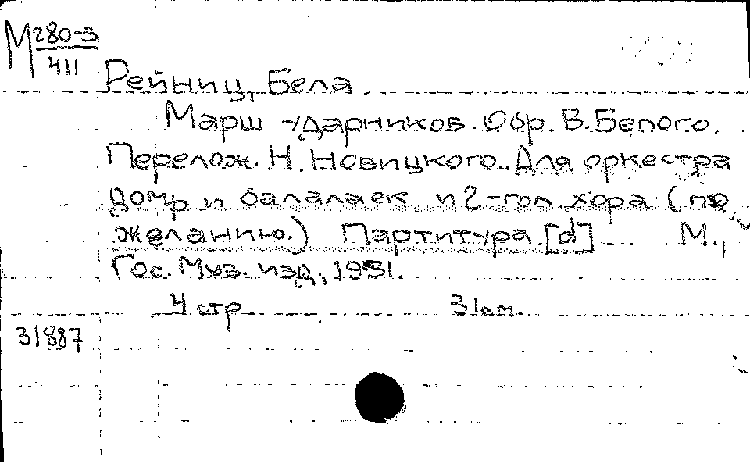 М 280-3
411
Рейниц, Бела.
Марш ударников. Обр. В. Белого.
Перелож. Н. Новицкого. Для оркестра
домр и балалаек и 2-гол. хора (по
желанию.) Партитура. [d] М.,
Гос. Муз. изд., 1931.
4 стр. 31 см.
31887